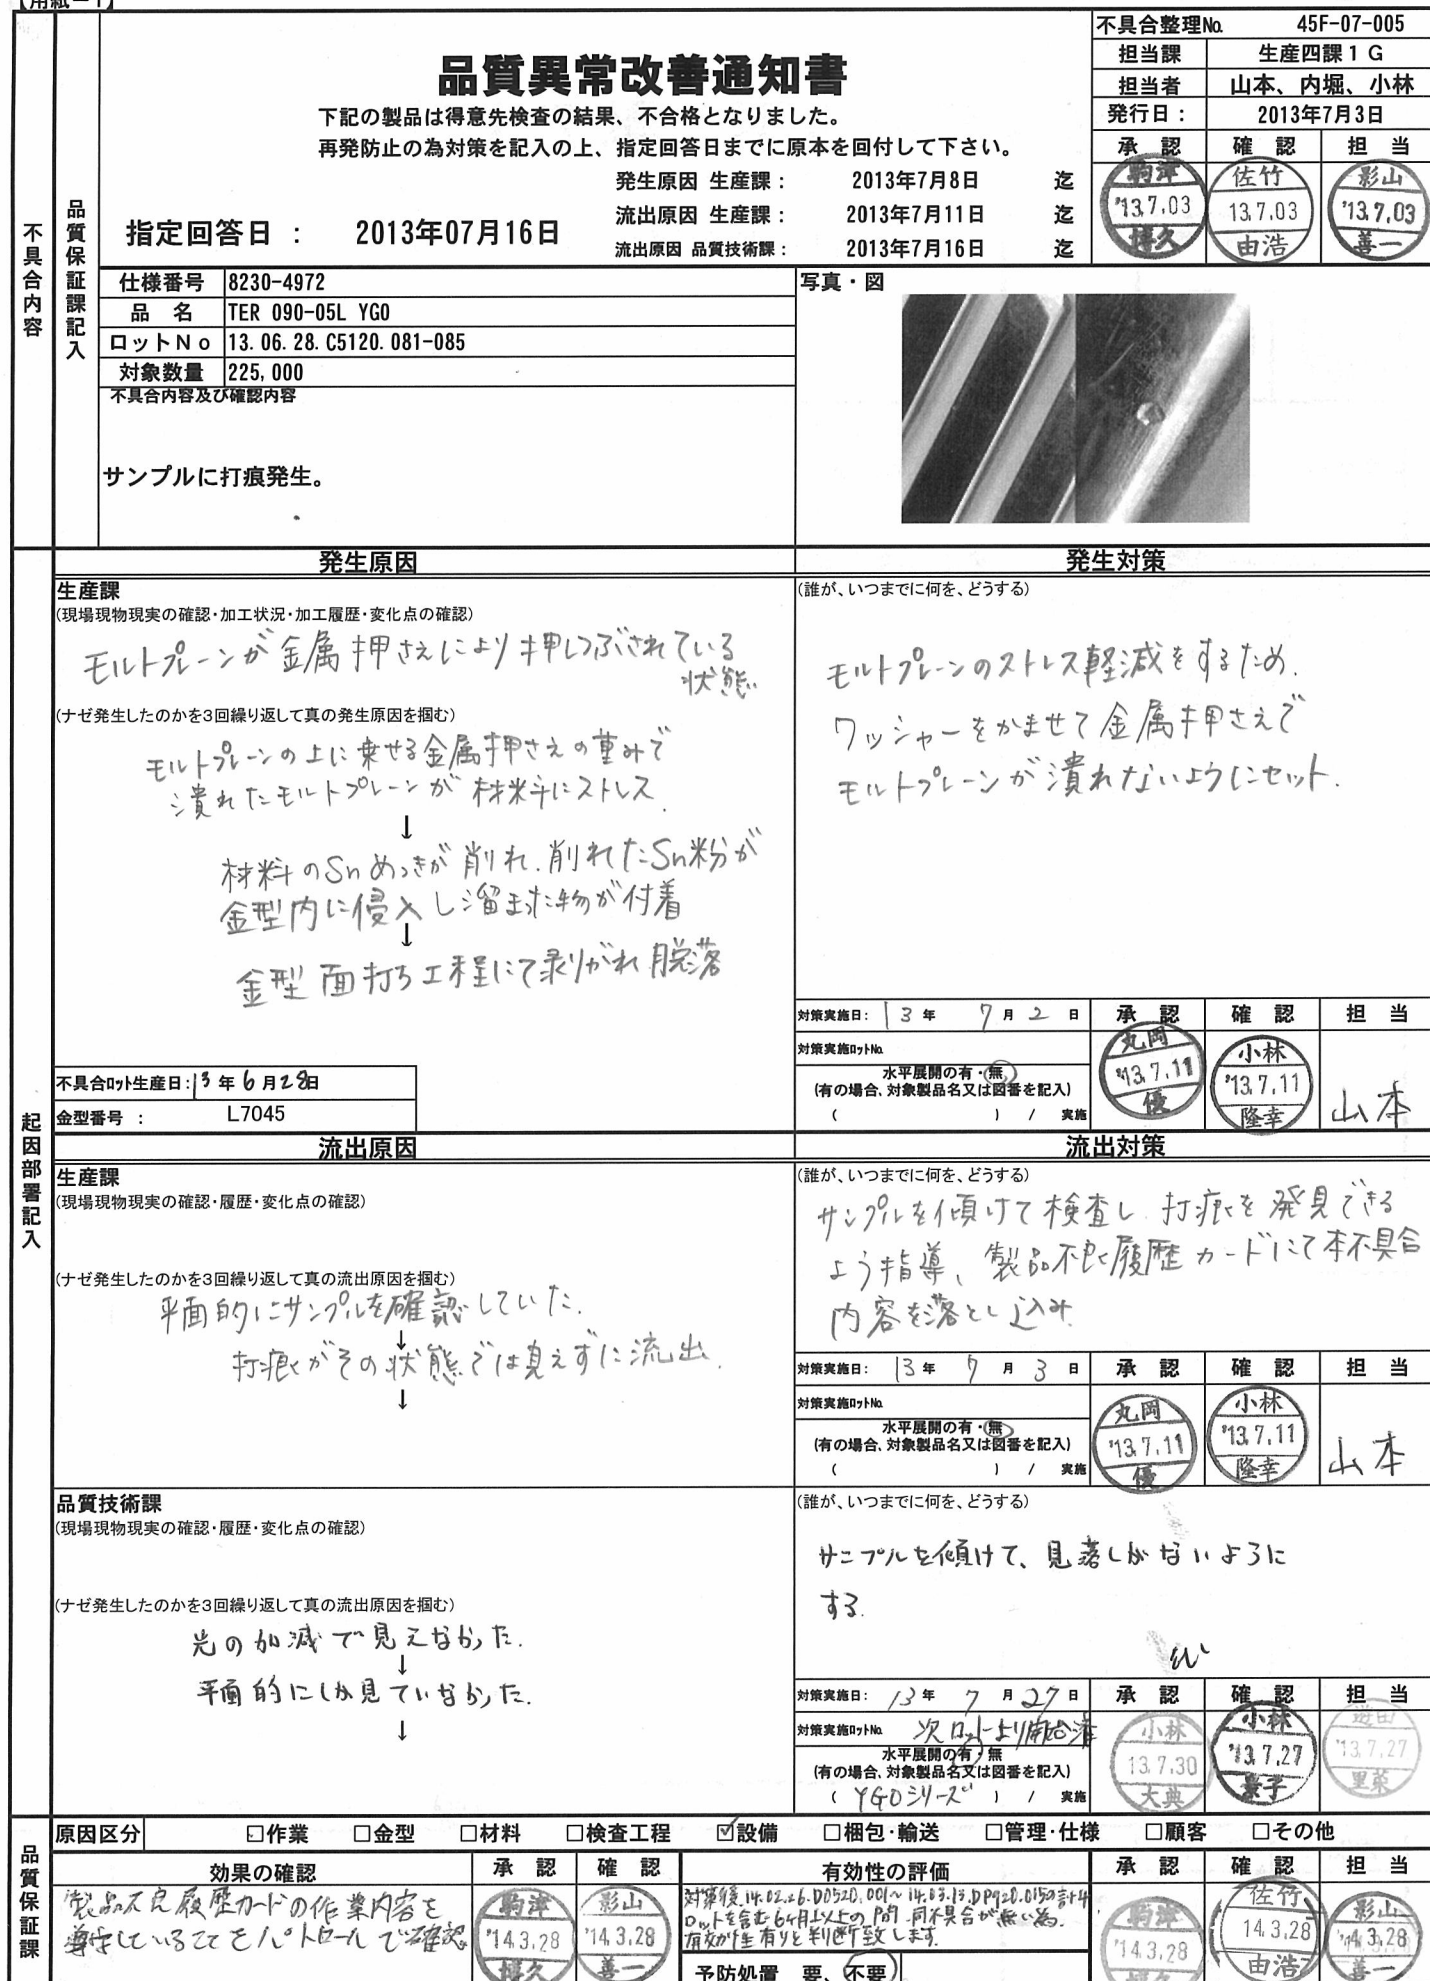 【用紙－1】
不具合整理No. 45F-07-005
担当課 生産四課1G
担当者 山本、内堀、小林
発行日： 2013年7月3日
承認 確認 担当
駒津 '13.7.03 博久
佐竹 13.7.03 由浩
影山 '13.7.03 善一
品質異常改善通知書
下記の製品は得意先検査の結果、不合格となりました。
再発防止の為対策を記入の上、指定回答日までに原本を回付して下さい。
発生原因 生産課： 2013年7月8日 迄
流出原因 生産課： 2013年7月11日 迄
流出原因 品質技術課： 2013年7月16日 迄
指定回答日 ： 2013年07月16日
不具合内容
品質保証課記入
仕様番号 8230-4972
品名 TER 090-05L YGO
ロットNo 13.06.28.C5120.081-085
対象数量 225,000
不具合内容及び確認内容
サンプルに打痕発生。
写真・図
起因部署記入
発生原因
生産課
(現場現物現実の確認・加工状況・加工履歴・変化点の確認)
モルトプレーンが金属押さえにより押しつぶされている
状態
(ナゼ発生したのかを3回繰り返して真の発生原因を掴む)
モルトプレーンの上に乗せる金属押さえの重みで
潰れたモルトプレーンが材料にストレス.
↓
材料のSnめっきが削れ.削れたSn粉が
金型内に侵入し溜まった物が付着
↓
金型面打ち工程にて剥がれ脱落
不具合ロット生産日：13年6月28日
金型番号 ： L7045
発生対策
(誰が、いつまでに何を、どうする)
モルトプレーンのストレス軽減をするため.
ワッシャーをかませて金属押さえで
モルトプレーンが潰れないようにセット.
対策実施日： 13年 7月 2日
対策実施ロットNo.
水平展開の有・無
(有の場合、対象製品名又は図番を記入)
( ) / 実施
承認 確認 担当
丸岡 '13.7.11 優
小林 '13.7.11 隆幸
山本
流出原因
生産課
(現場現物現実の確認・履歴・変化点の確認)
(ナゼ発生したのかを3回繰り返して真の流出原因を掴む)
平面的にサンプルを確認していた.
↓
打痕がその状態では見えずに流出.
↓
流出対策
(誰が、いつまでに何を、どうする)
サンプルを傾けて検査し.打痕を発見できる
よう指導、製品不良履歴カードにて本不具合
内容を落とし込み.
対策実施日： 13年 7月 3日
対策実施ロットNo.
水平展開の有・無
(有の場合、対象製品名又は図番を記入)
( ) / 実施
承認 確認 担当
丸岡 '13.7.11 優
小林 '13.7.11 隆幸
山本
品質技術課
(現場現物現実の確認・履歴・変化点の確認)
(ナゼ発生したのかを3回繰り返して真の流出原因を掴む)
光の加減で見えなかった.
↓
平面的にしか見ていなかった.
↓
(誰が、いつまでに何を、どうする)
サンプルを傾けて、見落しがないように
する.
対策実施日： 13年 7月 27日
対策実施ロットNo. 次ロットより開始済
水平展開の有・無
(有の場合、対象製品名又は図番を記入)
( YGOシリーズ ) / 実施
承認 確認 担当
小林 13.7.30 大典
小林 '13.7.27
'13.7.27
品質保証課
原因区分 □作業 □金型 □材料 □検査工程 ☑設備 □梱包・輸送 □管理・仕様 □顧客 □その他
効果の確認
製品不良履歴カードの作業内容を
遵守していることをパトロールで確認
承認 確認
駒津 '14.3.28 博久
影山 '14.3.28 善一
有効性の評価
対策後、14.02.26.D0520.001～14.03.13.
ロットを含む6ヶ月以上の間、同不具合が無い為.
有効性有りと判断致します.
予防処置 要、不要
承認 確認 担当
駒津 '14.3.28 博久
佐竹 14.3.28 由浩
影山 '14.3.28 善一